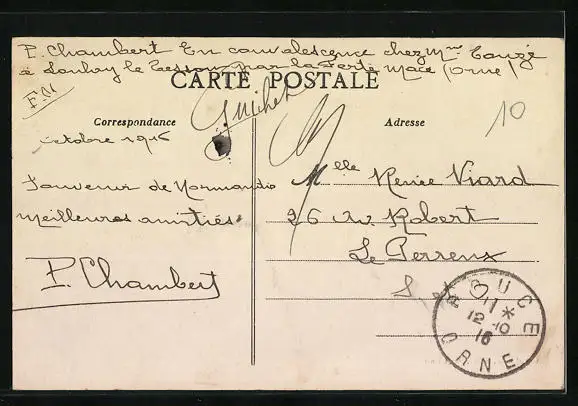 P. Chambert En convalescence chez Mme Touzé
à Lonlay le Tesson par la Ferté Macé (Orne)
CARTE POSTALE
FM
Guichet
Correspondance
Adresse
10
Octobre 1916
Souvenir de Normandie
meilleures amitiés
P. Chambert
Melle Renée Viard
26 Av. Robert
Le Perreux
BOUCE
11 *
12-10
16
ORNE